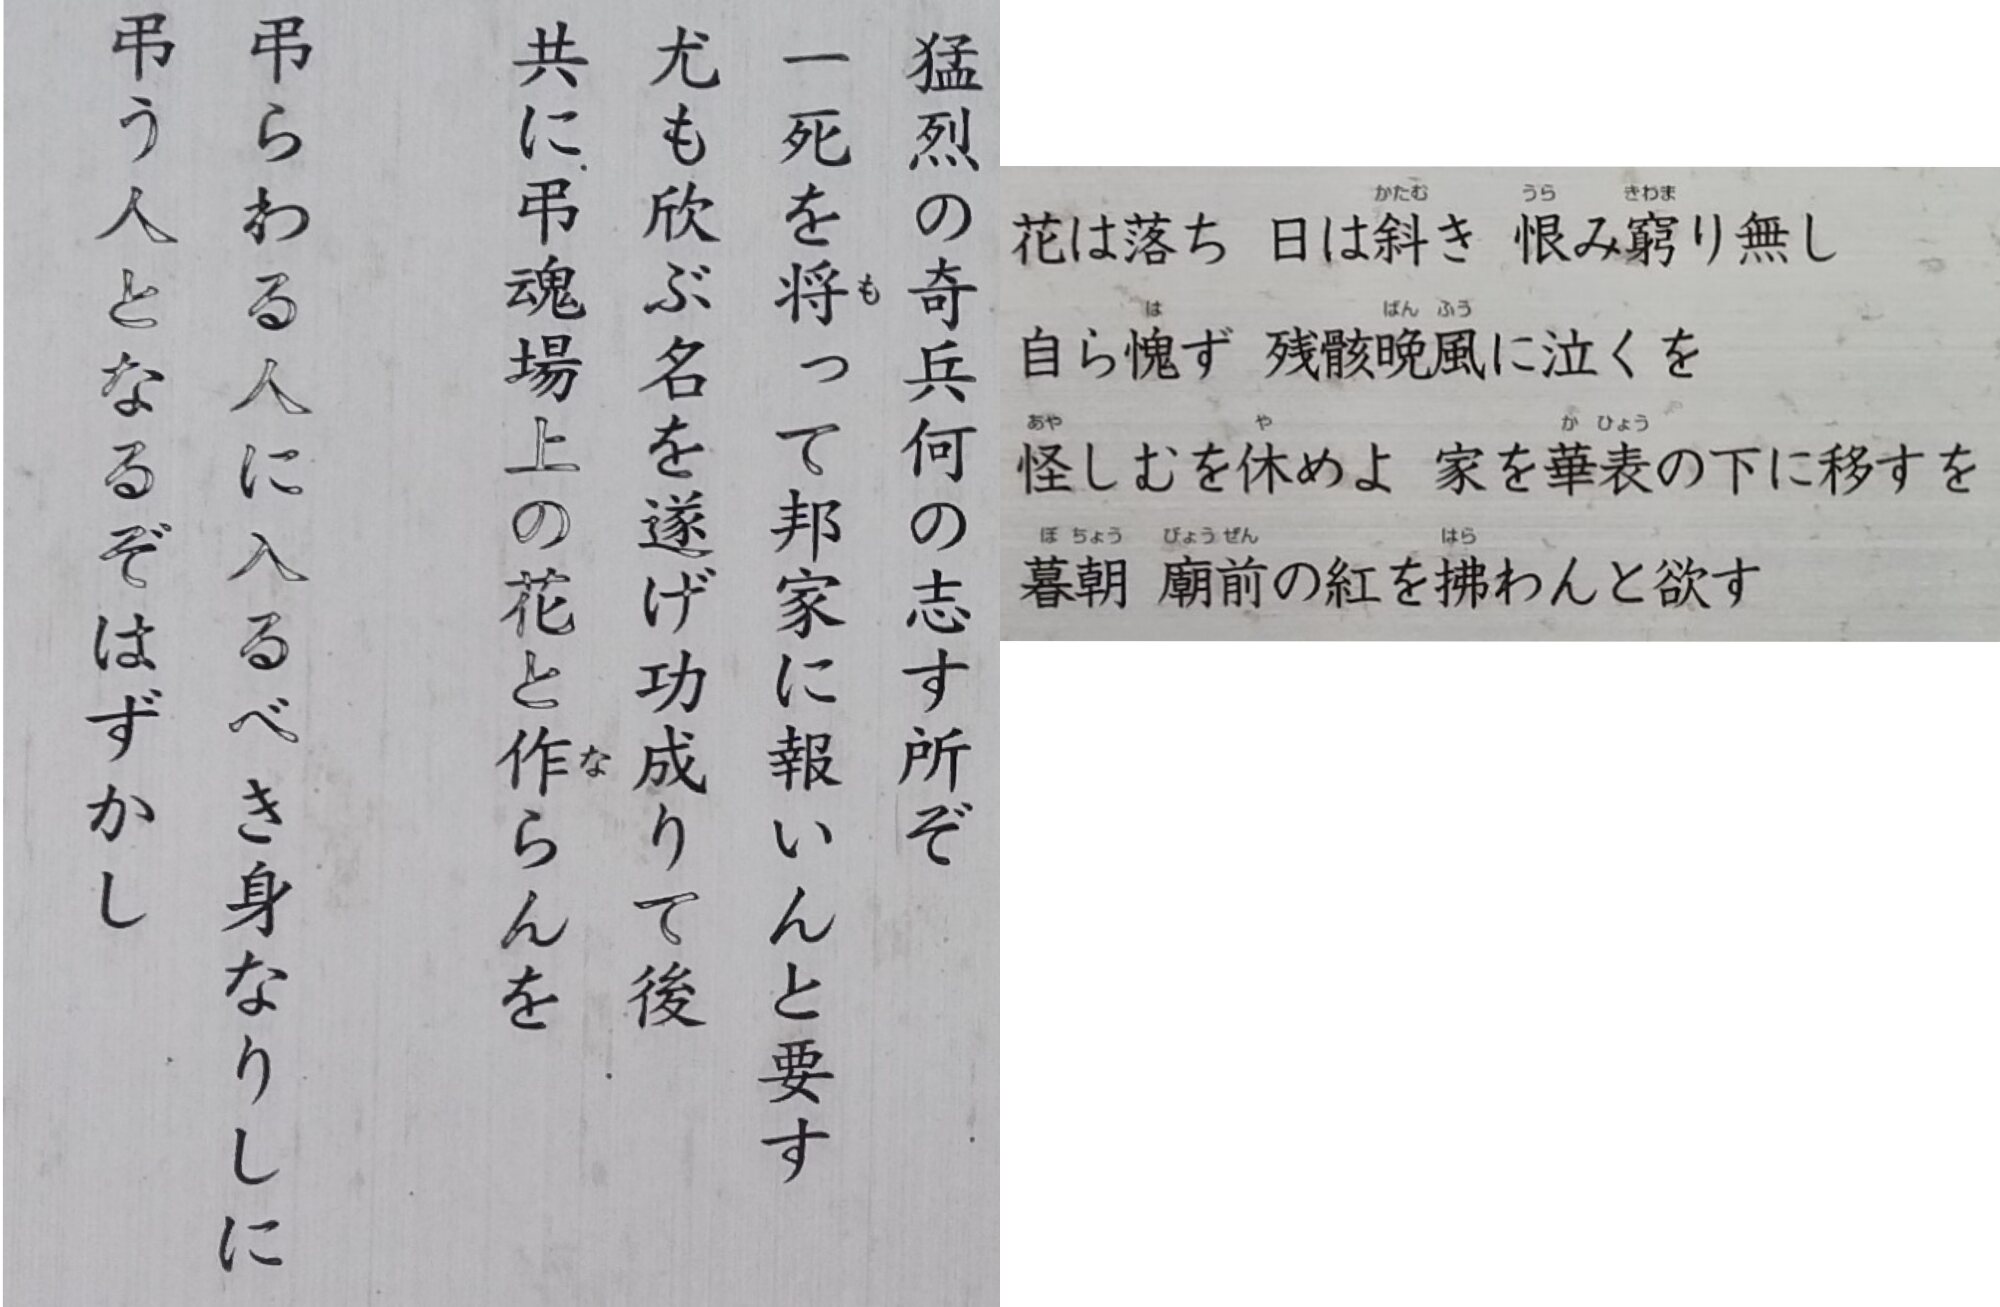 猛烈の奇兵何の志す所ぞ
一死を将って邦家に報いんと要す
も
尤も欣ぶ名を遂げ功成りて後
共に弔魂場上の花と作らんを
な
弔らわる人に入るべき身なりしに
弔う人となるぞはずかし
かたむ うら きわま
花は落ち 日は斜き 恨み窮り無し
は ばん ふう
自ら愧ず 残骸晩風に泣くを
あや や か ひょう
怪しむを休めよ 家を華表の下に移すを
ぼ ちょう びょう ぜん はら
暮朝 廟前の紅を拂わんと欲す